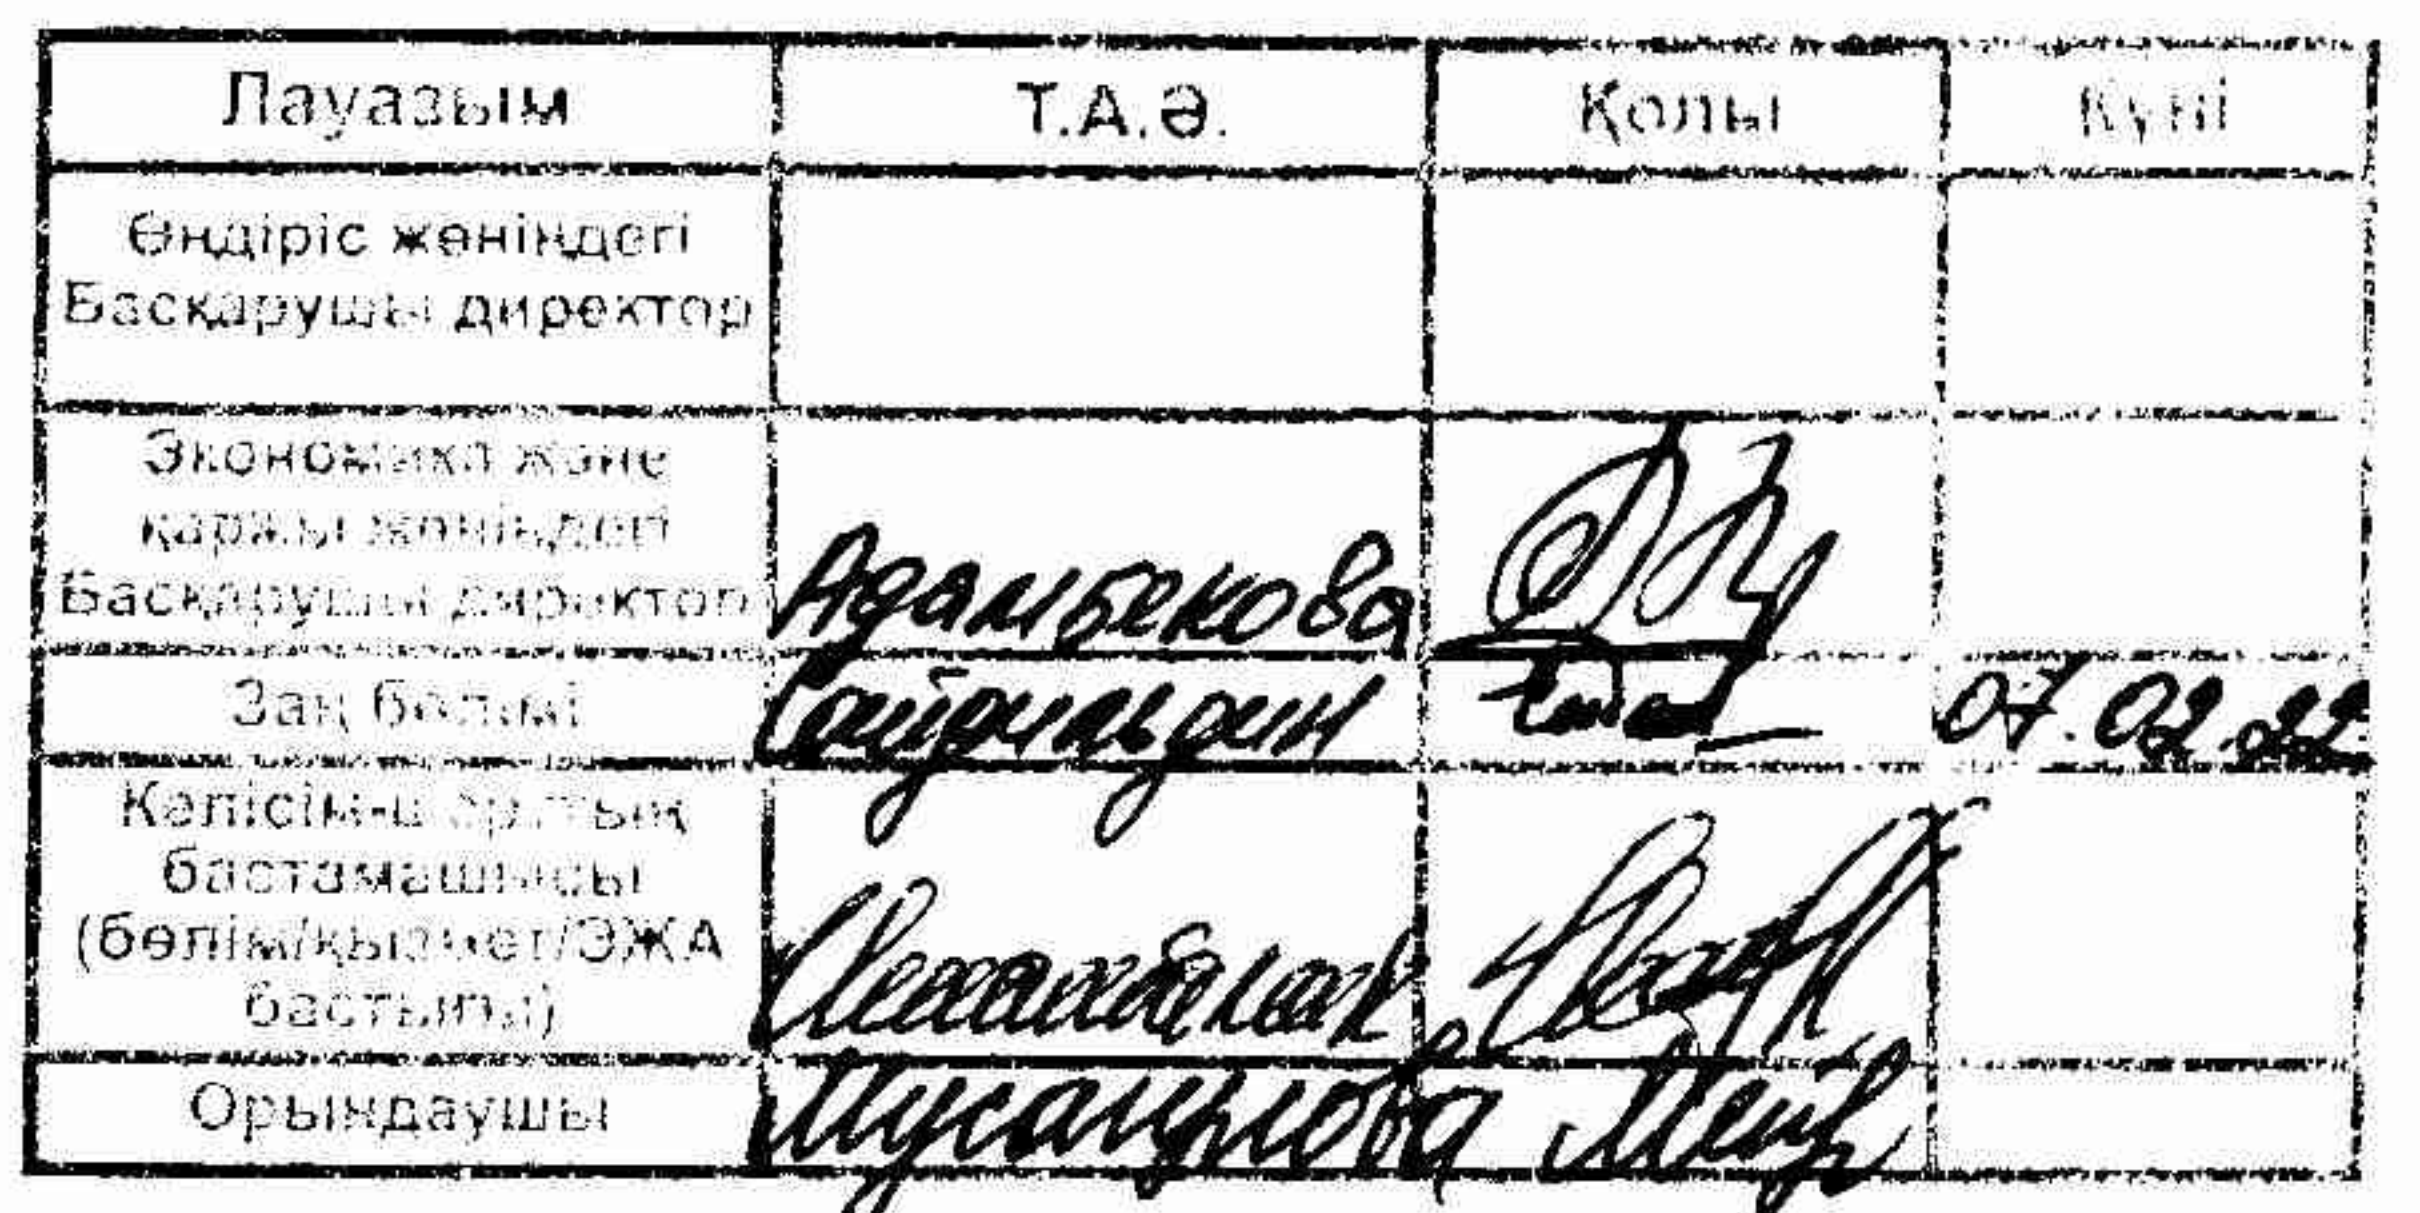 Лауазым Т.А.Ә. Қолы Күні
Өндіріс жөніндегі
Басқарушы директор
Экономика және
қаржы жөніндегі
Басқарушы директор Адамбекова
Заң бөлімі 07.02.22
Келісім-шарттың
бастамашысы
(бөлім/қызмет/ЭЖА
бастығы)
Орындаушы